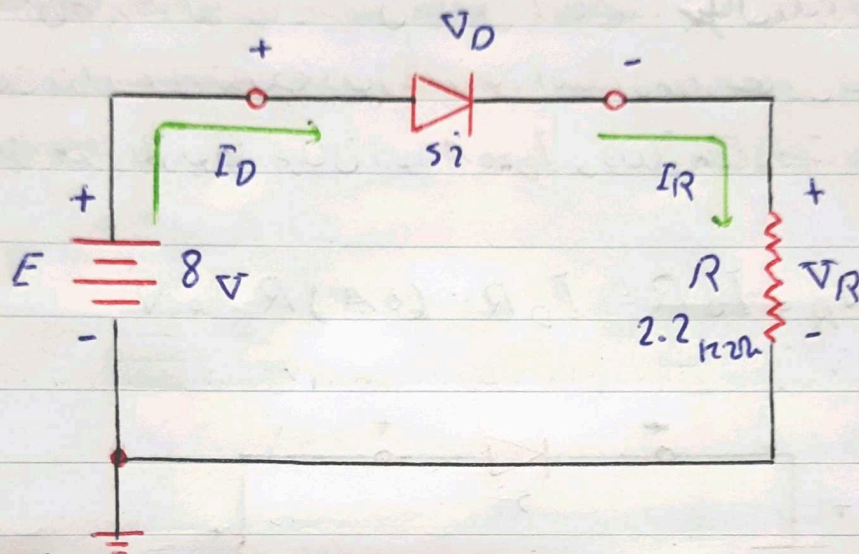 V_D
+
-
I_D
Si
I_R
+
+
E
8 V
R
V_R
2.2 kΩ
-
-